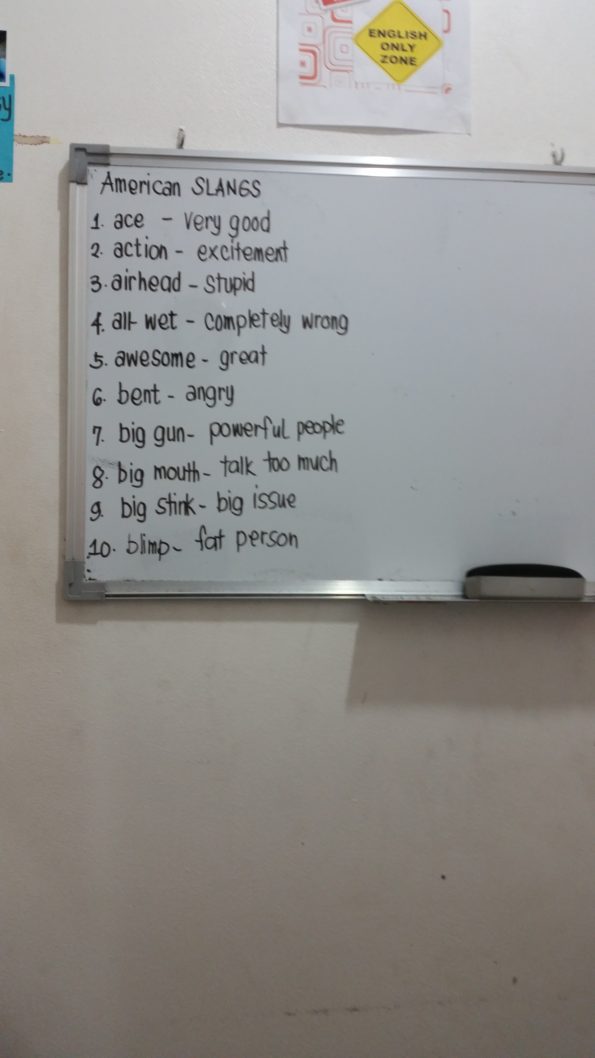 ENGLISH
ONLY
ZONE
American SLANGS
1. ace - Very good
2. action - excitement
3. airhead - stupid
4. all wet - completely wrong
5. awesome - great
6. bent - angry
7. big gun - powerful people
8. big mouth - talk too much
9. big stink - big issue
10. blimp - fat person